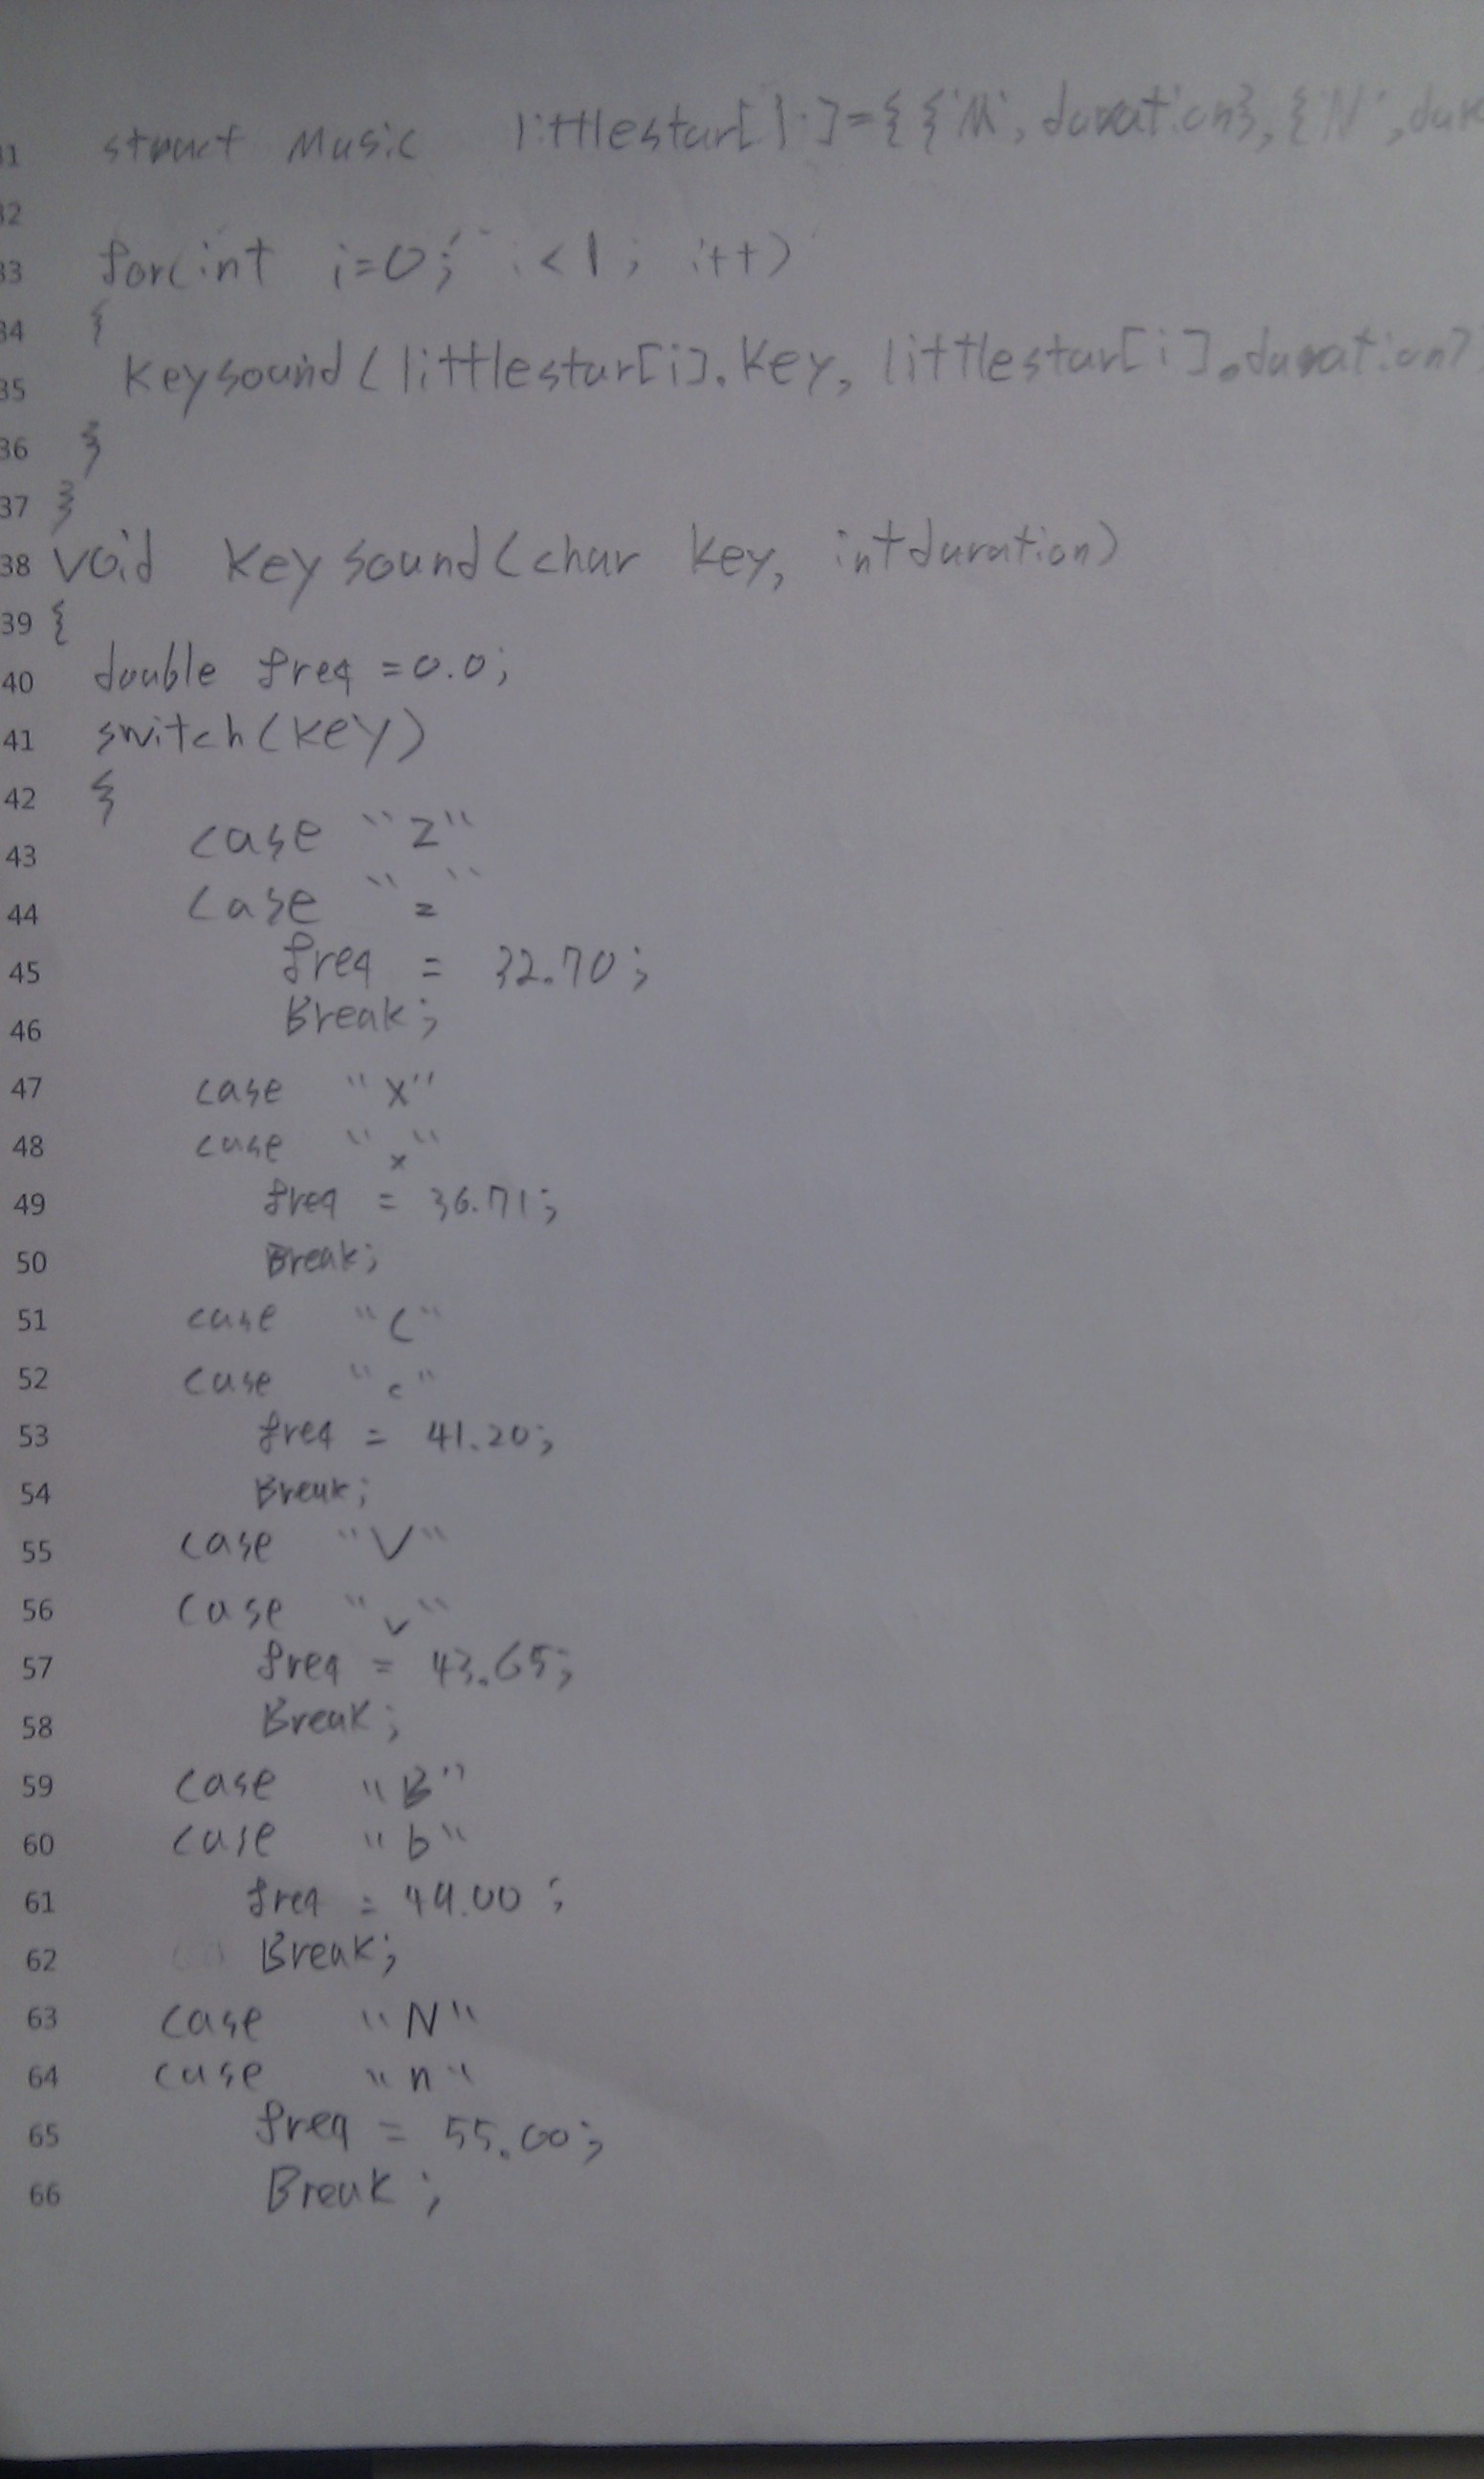 31 struct Music littlestar[1]={{'M', duration},{'N',
32
33 for(int i=0; i<1; i++)
34 {
35 Keysound(littlestar[i].Key, littlestar[i].duration)
36 }
37 }
38 void Keysound(char Key, int duration)
39 {
40 double freq =0.0;
41 switch(KEY)
42 {
43 case "Z"
44 case "z"
45 freq = 32.70;
46 Break;
47 case "X"
48 case "x"
49 freq = 36.71;
50 Break;
51 case "C"
52 case "c"
53 freq = 41.20;
54 Break;
55 case "V"
56 case "v"
57 freq = 43.65;
58 Break;
59 case "B"
60 case "b"
61 freq = 49.00;
62 Break;
63 case "N"
64 case "n"
65 freq = 55.00;
66 Break;